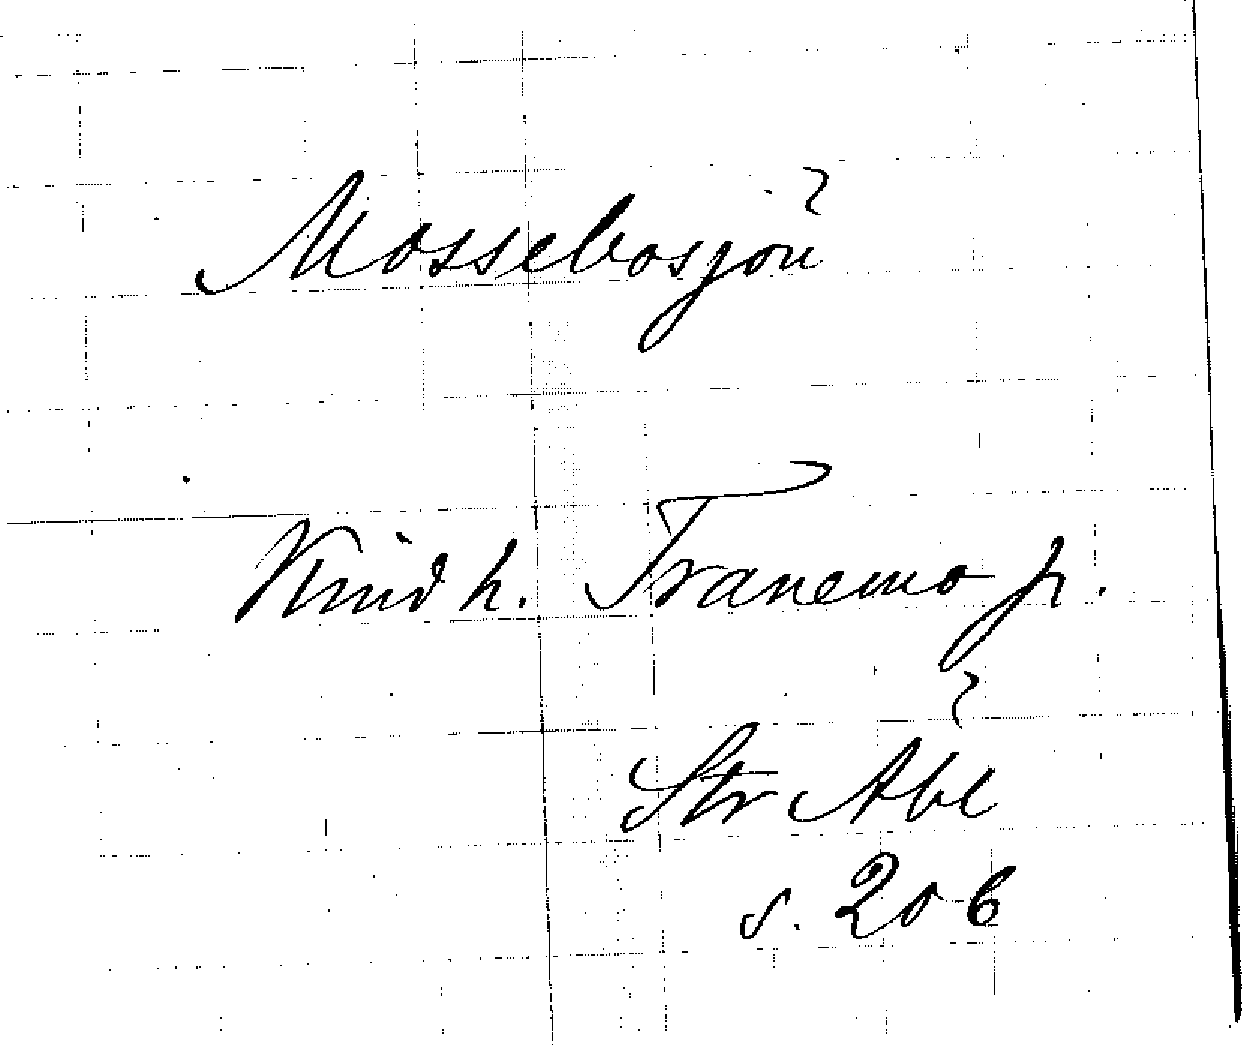 Mossebosjön
Kind h. Tranemo p.
Str Abl
s. 206